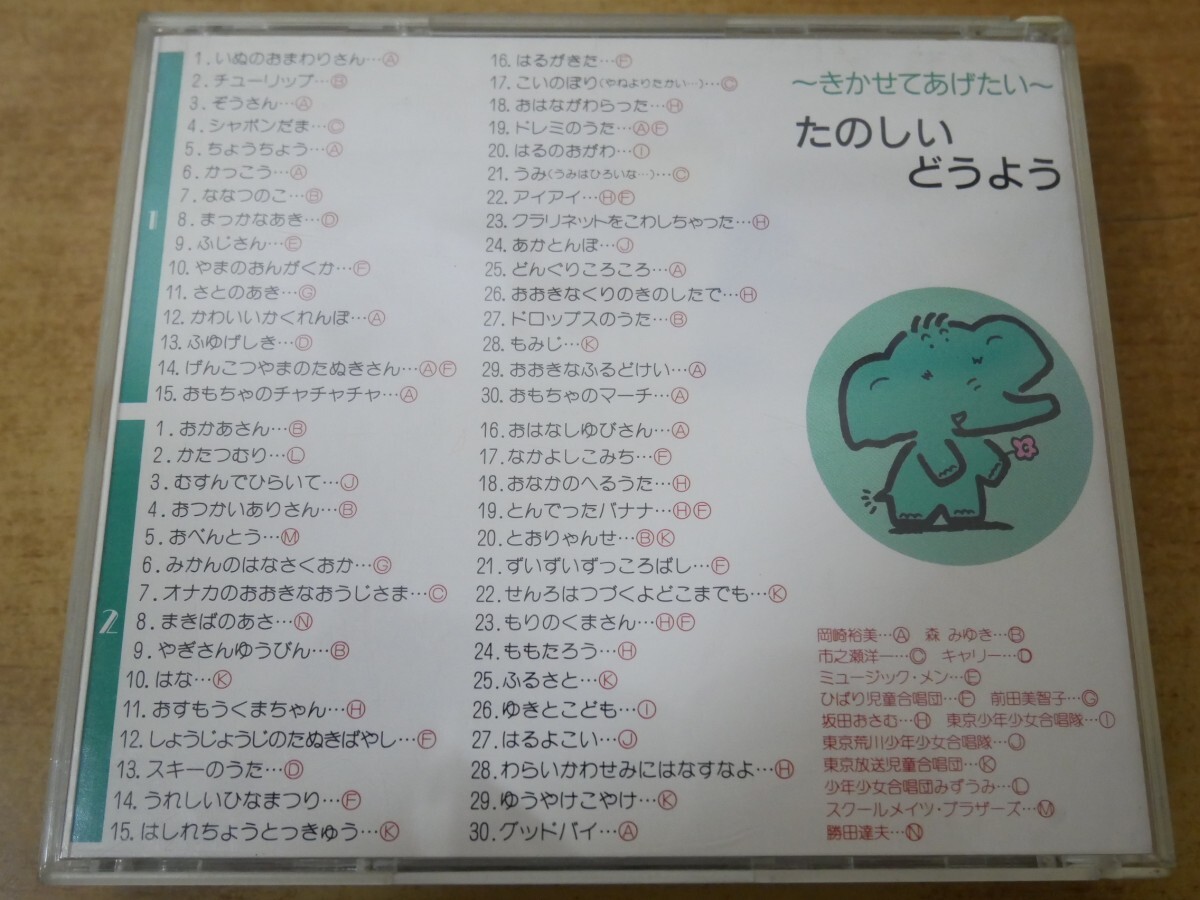 1
1. いぬのおまわりさん…Ⓐ
2. チューリップ…Ⓑ
3. ぞうさん…Ⓐ
4. シャボンだま…Ⓒ
5. ちょうちょう…Ⓐ
6. かっこう…Ⓐ
7. ななつのこ…Ⓑ
8. まっかなあき…Ⓓ
9. ふじさん…Ⓔ
10. やまのおんがくか…Ⓕ
11. さとのあき…Ⓖ
12. かわいいかくれんぼ…Ⓐ
13. ふゆげしき…Ⓓ
14. げんこつやまのたぬきさん…ⒶⒻ
15. おもちゃのチャチャチャ…Ⓐ
16. はるがきた…Ⓕ
17. こいのぼり(やねよりたかい…)…Ⓒ
18. おはながわらった…Ⓗ
19. ドレミのうた…ⒶⒻ
20. はるのおがわ…Ⓘ
21. うみ(うみはひろいな…)…Ⓒ
22. アイアイ…ⒽⒻ
23. クラリネットをこわしちゃった…Ⓗ
24. あかとんぼ…Ⓙ
25. どんぐりころころ…Ⓐ
26. おおきなくりのきのしたで…Ⓗ
27. ドロップスのうた…Ⓑ
28. もみじ…Ⓚ
29. おおきなふるどけい…Ⓐ
30. おもちゃのマーチ…Ⓐ
2
1. おかあさん…Ⓑ
2. かたつむり…Ⓛ
3. むすんでひらいて…Ⓙ
4. おつかいありさん…Ⓑ
5. おべんとう…Ⓜ
6. みかんのはなさくおか…Ⓖ
7. オナカのおおきなおうじさま…Ⓒ
8. まきばのあさ…Ⓝ
9. やぎさんゆうびん…Ⓑ
10. はな…Ⓚ
11. おすもうくまちゃん…Ⓗ
12. しょうじょうじのたぬきばやし…Ⓕ
13. スキーのうた…Ⓓ
14. うれしいひなまつり…Ⓕ
15. はしれちょうとっきゅう…Ⓚ
16. おはなしゆびさん…Ⓐ
17. なかよしこみち…Ⓕ
18. おなかのへるうた…Ⓗ
19. とんでったバナナ…ⒽⒻ
20. とおりゃんせ…ⒷⓀ
21. ずいずいずっころばし…Ⓕ
22. せんろはつづくよどこまでも…Ⓚ
23. もりのくまさん…ⒽⒻ
24. ももたろう…Ⓗ
25. ふるさと…Ⓚ
26. ゆきとこども…Ⓘ
27. はるよこい…Ⓙ
28. わらいかわせみにはなすなよ…Ⓗ
29. ゆうやけこやけ…Ⓚ
30. グッドバイ…Ⓐ
〜きかせてあげたい〜
たのしい
どうよう
岡崎裕美…Ⓐ 森 みゆき…Ⓑ
市之瀬洋一…Ⓒ キャリー…Ⓓ
ミュージック・メン…Ⓔ
ひばり児童合唱団…Ⓕ 前田美智子…Ⓖ
坂田おさむ…Ⓗ 東京少年少女合唱隊…Ⓘ
東京荒川少年少女合唱隊…Ⓙ
東京放送児童合唱団…Ⓚ
少年少女合唱団みずうみ…Ⓛ
スクールメイツ・ブラザーズ…Ⓜ
勝田達夫…Ⓝ